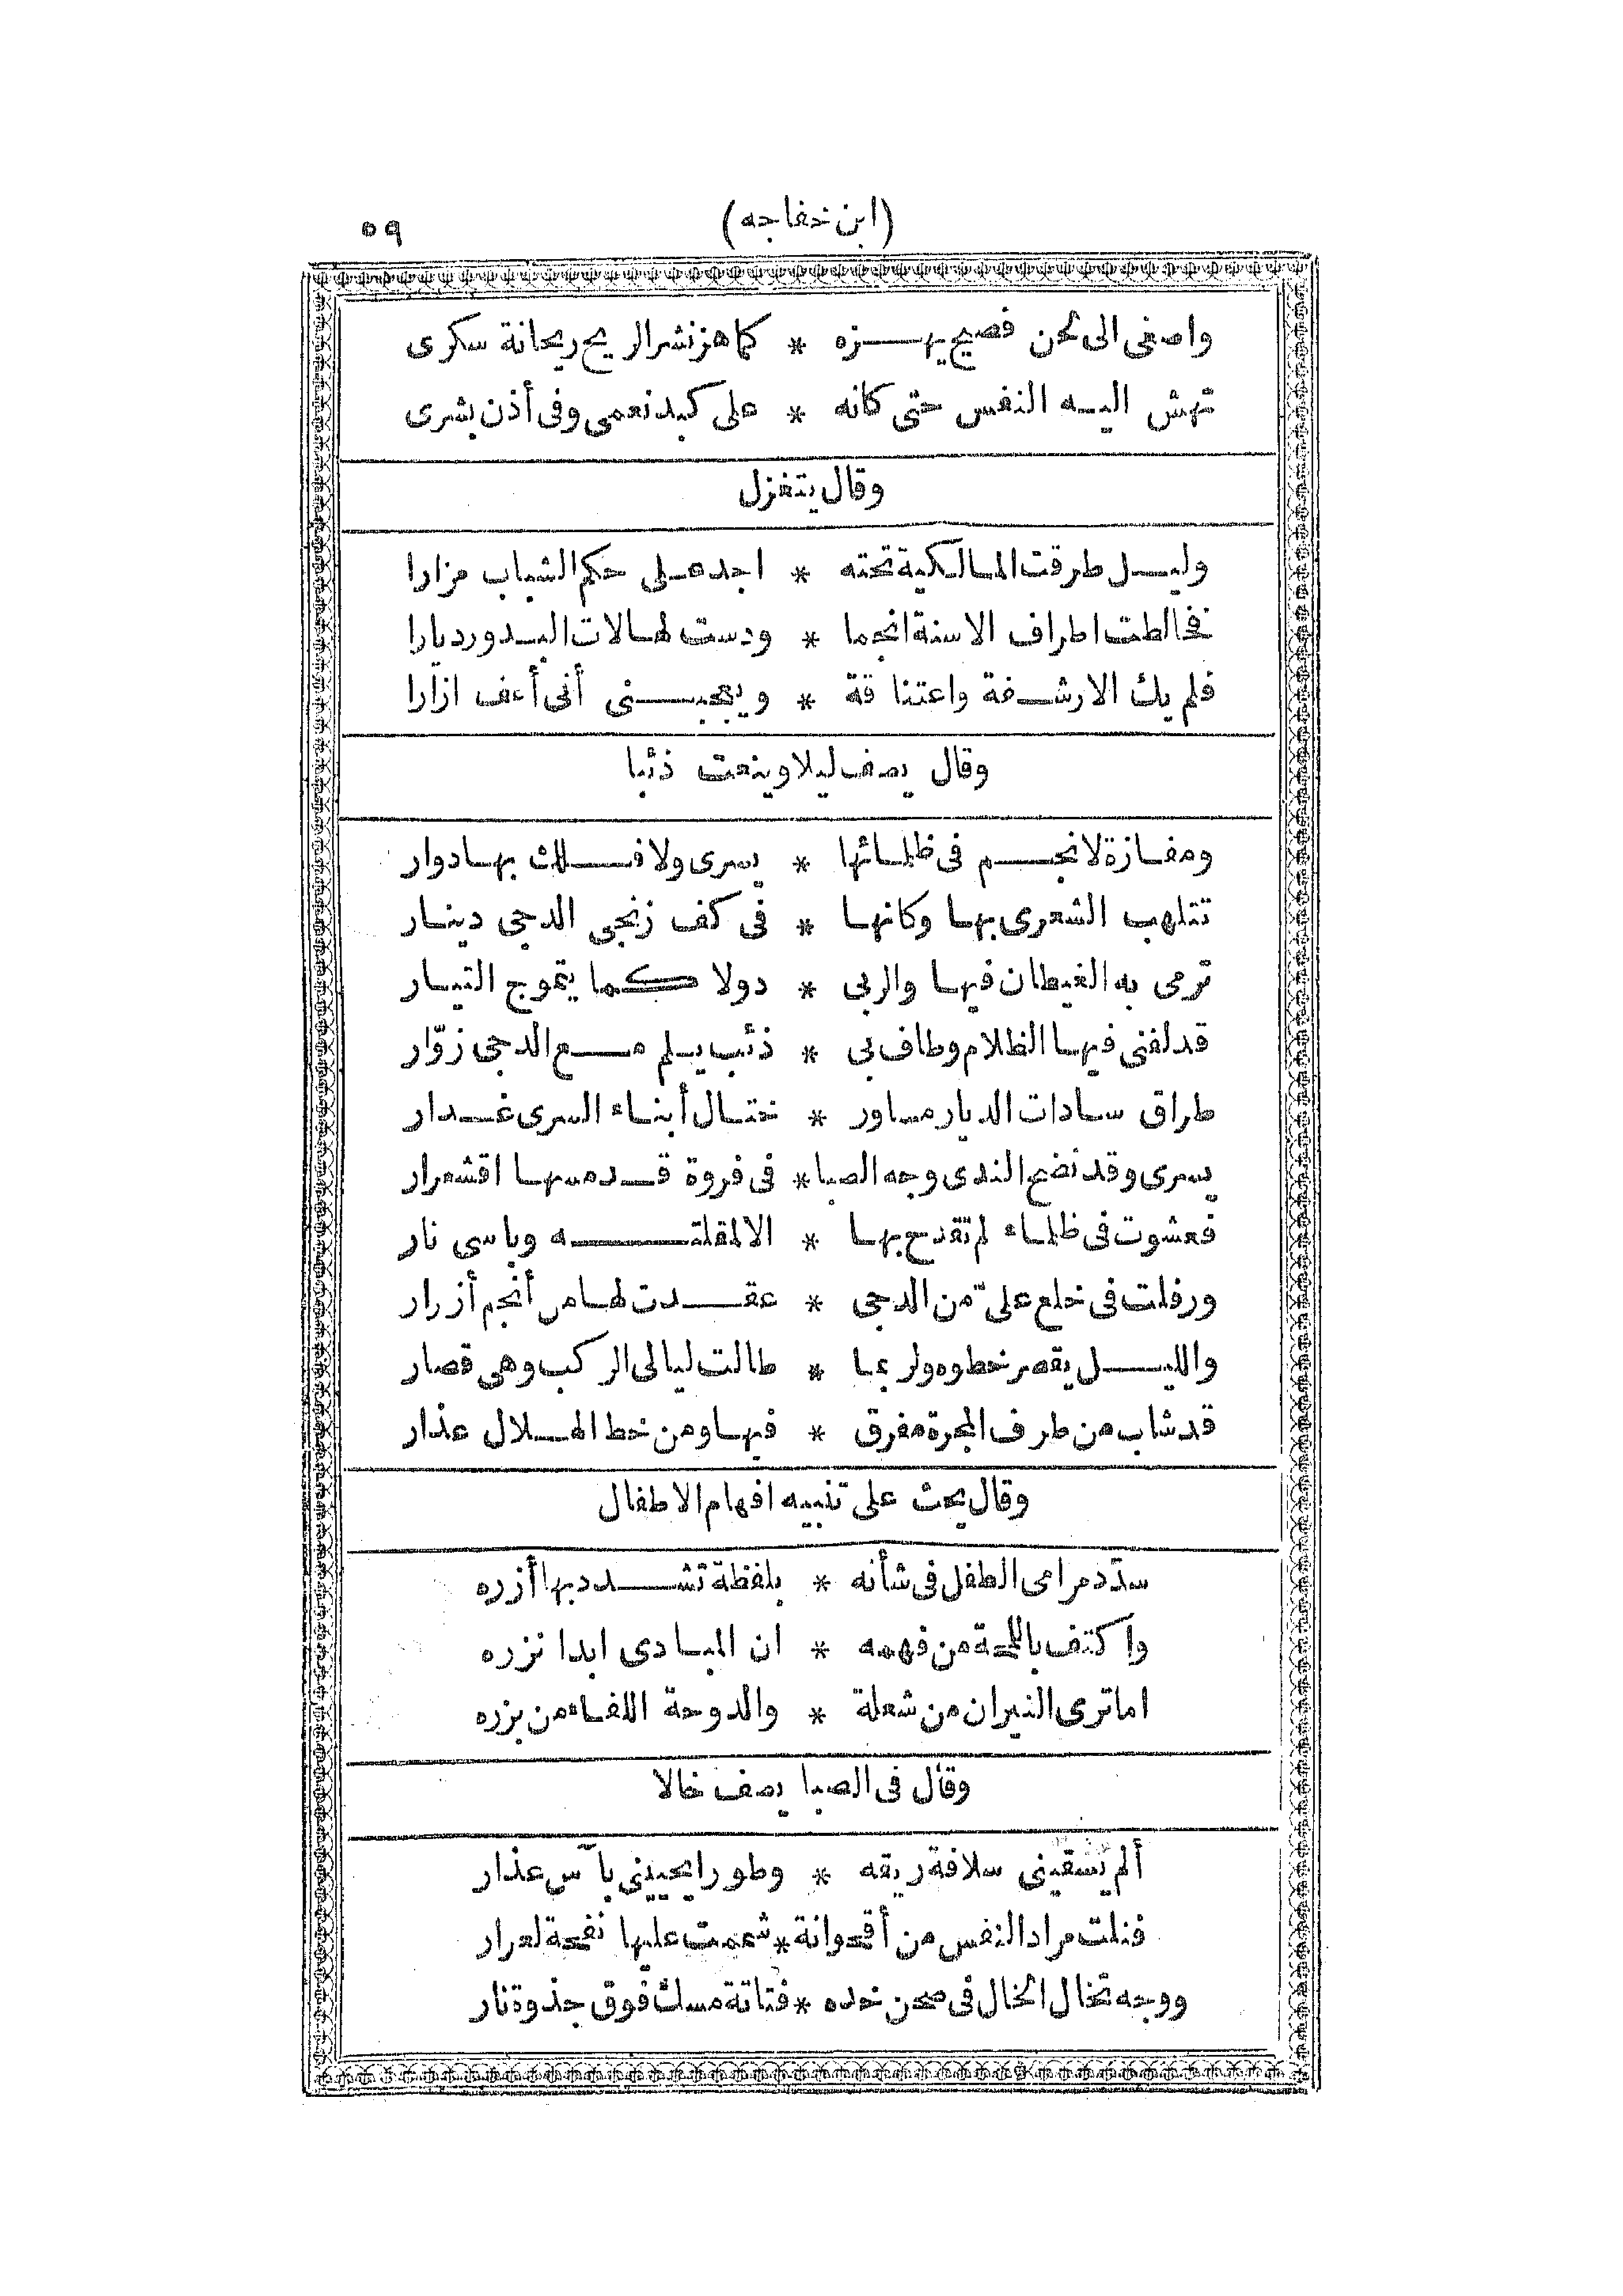 (ابن خفاجه)
٥٩
واصغى الى لحن فصيح يهزه * كما هز نشر الريح ريحانة سكرى
تهش اليه النفس حتى كانه * على كبد نعمى وفى أذن بشرى
وقال يتغزل
وليل طرقت المالكية تحته * اجد على حكم الشباب مزارا
فخالطت اطراف الاسنة انجما * ودست لهالات البدور ديارا
فلم يك الا رشفة واعتناقة * ويعجبنى أنى أعف ازارا
وقال يصف ليلا وينعت ذئبا
ومفازة لا نجم فى ظلمائها * يسرى ولا فلك بها دوار
تتلهب الشعرى بها وكانها * فى كف زنجى الدجى دينار
ترمى به الغيطان فيها والربى * دولا كما يتموج التيار
قد لفنى فيها الظلام وطاف بى * ذئب يلم مع الدجى زوّار
طراق سادات الديار مساور * ختال أبناء السرى غدار
يسرى وقد نضح الندى وجه الصبا * فى فروة قد مسها اقشعرار
فعشوت فى ظلماء لم تقدح بها * الا لمقلته وباسى نار
ورفلت فى خلع علىّ من الدجى * عقدت لها من أنجم أزرار
والليل يقصر خطوه ولربما * طالت ليالى الركب وهى قصار
قد شاب من طرف المجرة مفرق * فيها ومن خط الهلال عذار
وقال يحث على تنبيه افهام الاطفال
سدّد مرامى الطفل فى شأنه * بلفظة تشدد بها أزره
واكتف باللمحة من فهمه * ان المبادى ابدا نزره
اما ترى النيران من شعلة * والدوحة اللفاء من بزره
وقال فى الصبا يصف خالا
ألم يسقينى سلافة ريقه * وطورا يحيينى بآس عذار
فنلت مراد النفس من أقحوانة * شممت عليها نفحة لعرار
ووجه تخال الخال فى صحن خده * فتاتة مسك فوق جذوة نار